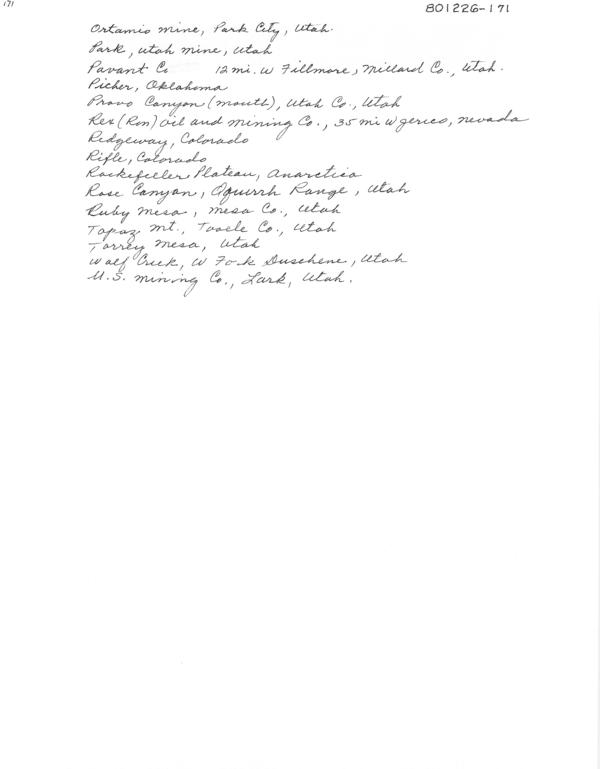 171
801226-171
Ortamio mine, Park City, Utah.
Park, Utah mine, Utah
Pavant Co 12 mi. W Fillmore, Millard Co., Utah.
Picher, Oklahoma
Provo Canyon (mouth), Utah Co., Utah
Rex (Ron) Oil and Mining Co., 35 mi W Jerico, nevada
Ridgeway, Colorado
Rifle, Colorado
Rockefeller Plateau, Anarctica
Rose Canyon, Oquirrh Range, Utah
Ruby mesa, mesa Co., Utah
Topaz mt., Tooele Co., Utah
Torrey mesa, Utah
Wolf Creek, W Fo-k Duschene, Utah
U.S. mining Co., Lark, Utah.